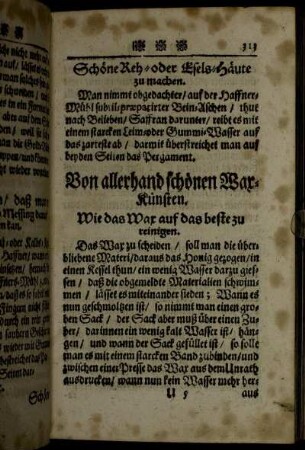 313
Schöne Reh- oder Esels-Häute
zu machen.
Man nimmt obgedachter / auf der Haffner-
Mühl subtil præparirter Bein-Aschen / thut
nach Belieben / Saffran darunter / reibt es mit
einem starcken Leim oder Gummi-Wasser auf
das zarteste ab / darmit überstreichet man auf
beyden Seiten das Pergament.
Von allerhand schönen Wax-
Künsten.
Wie das Wax auf das beste zu
reinigen.
Das Wax zu scheiden / soll man die über-
bliebene Materi / daraus das Honig gezogen / in
einen Kessel thun / ein wenig Wasser darzu gies-
sen / daß die obgemeldte Materialien schwim-
men / lässet es miteinander sieden; Wann es
nun geschmoltzen ist / so nimmt man einen gro-
ben Sack / der Sack aber muß über einen Zu-
ber / darinnen ein wenig kalt Wasser ist / hän-
gen / und wann der Sack gefüllet ist / so solle
man es mit einem starcken Band zubinden / und
zwischen einer Presse das Wax aus dem Unrath
ausdrucken / wann nun kein Wasser mehr her-
U 5 aus